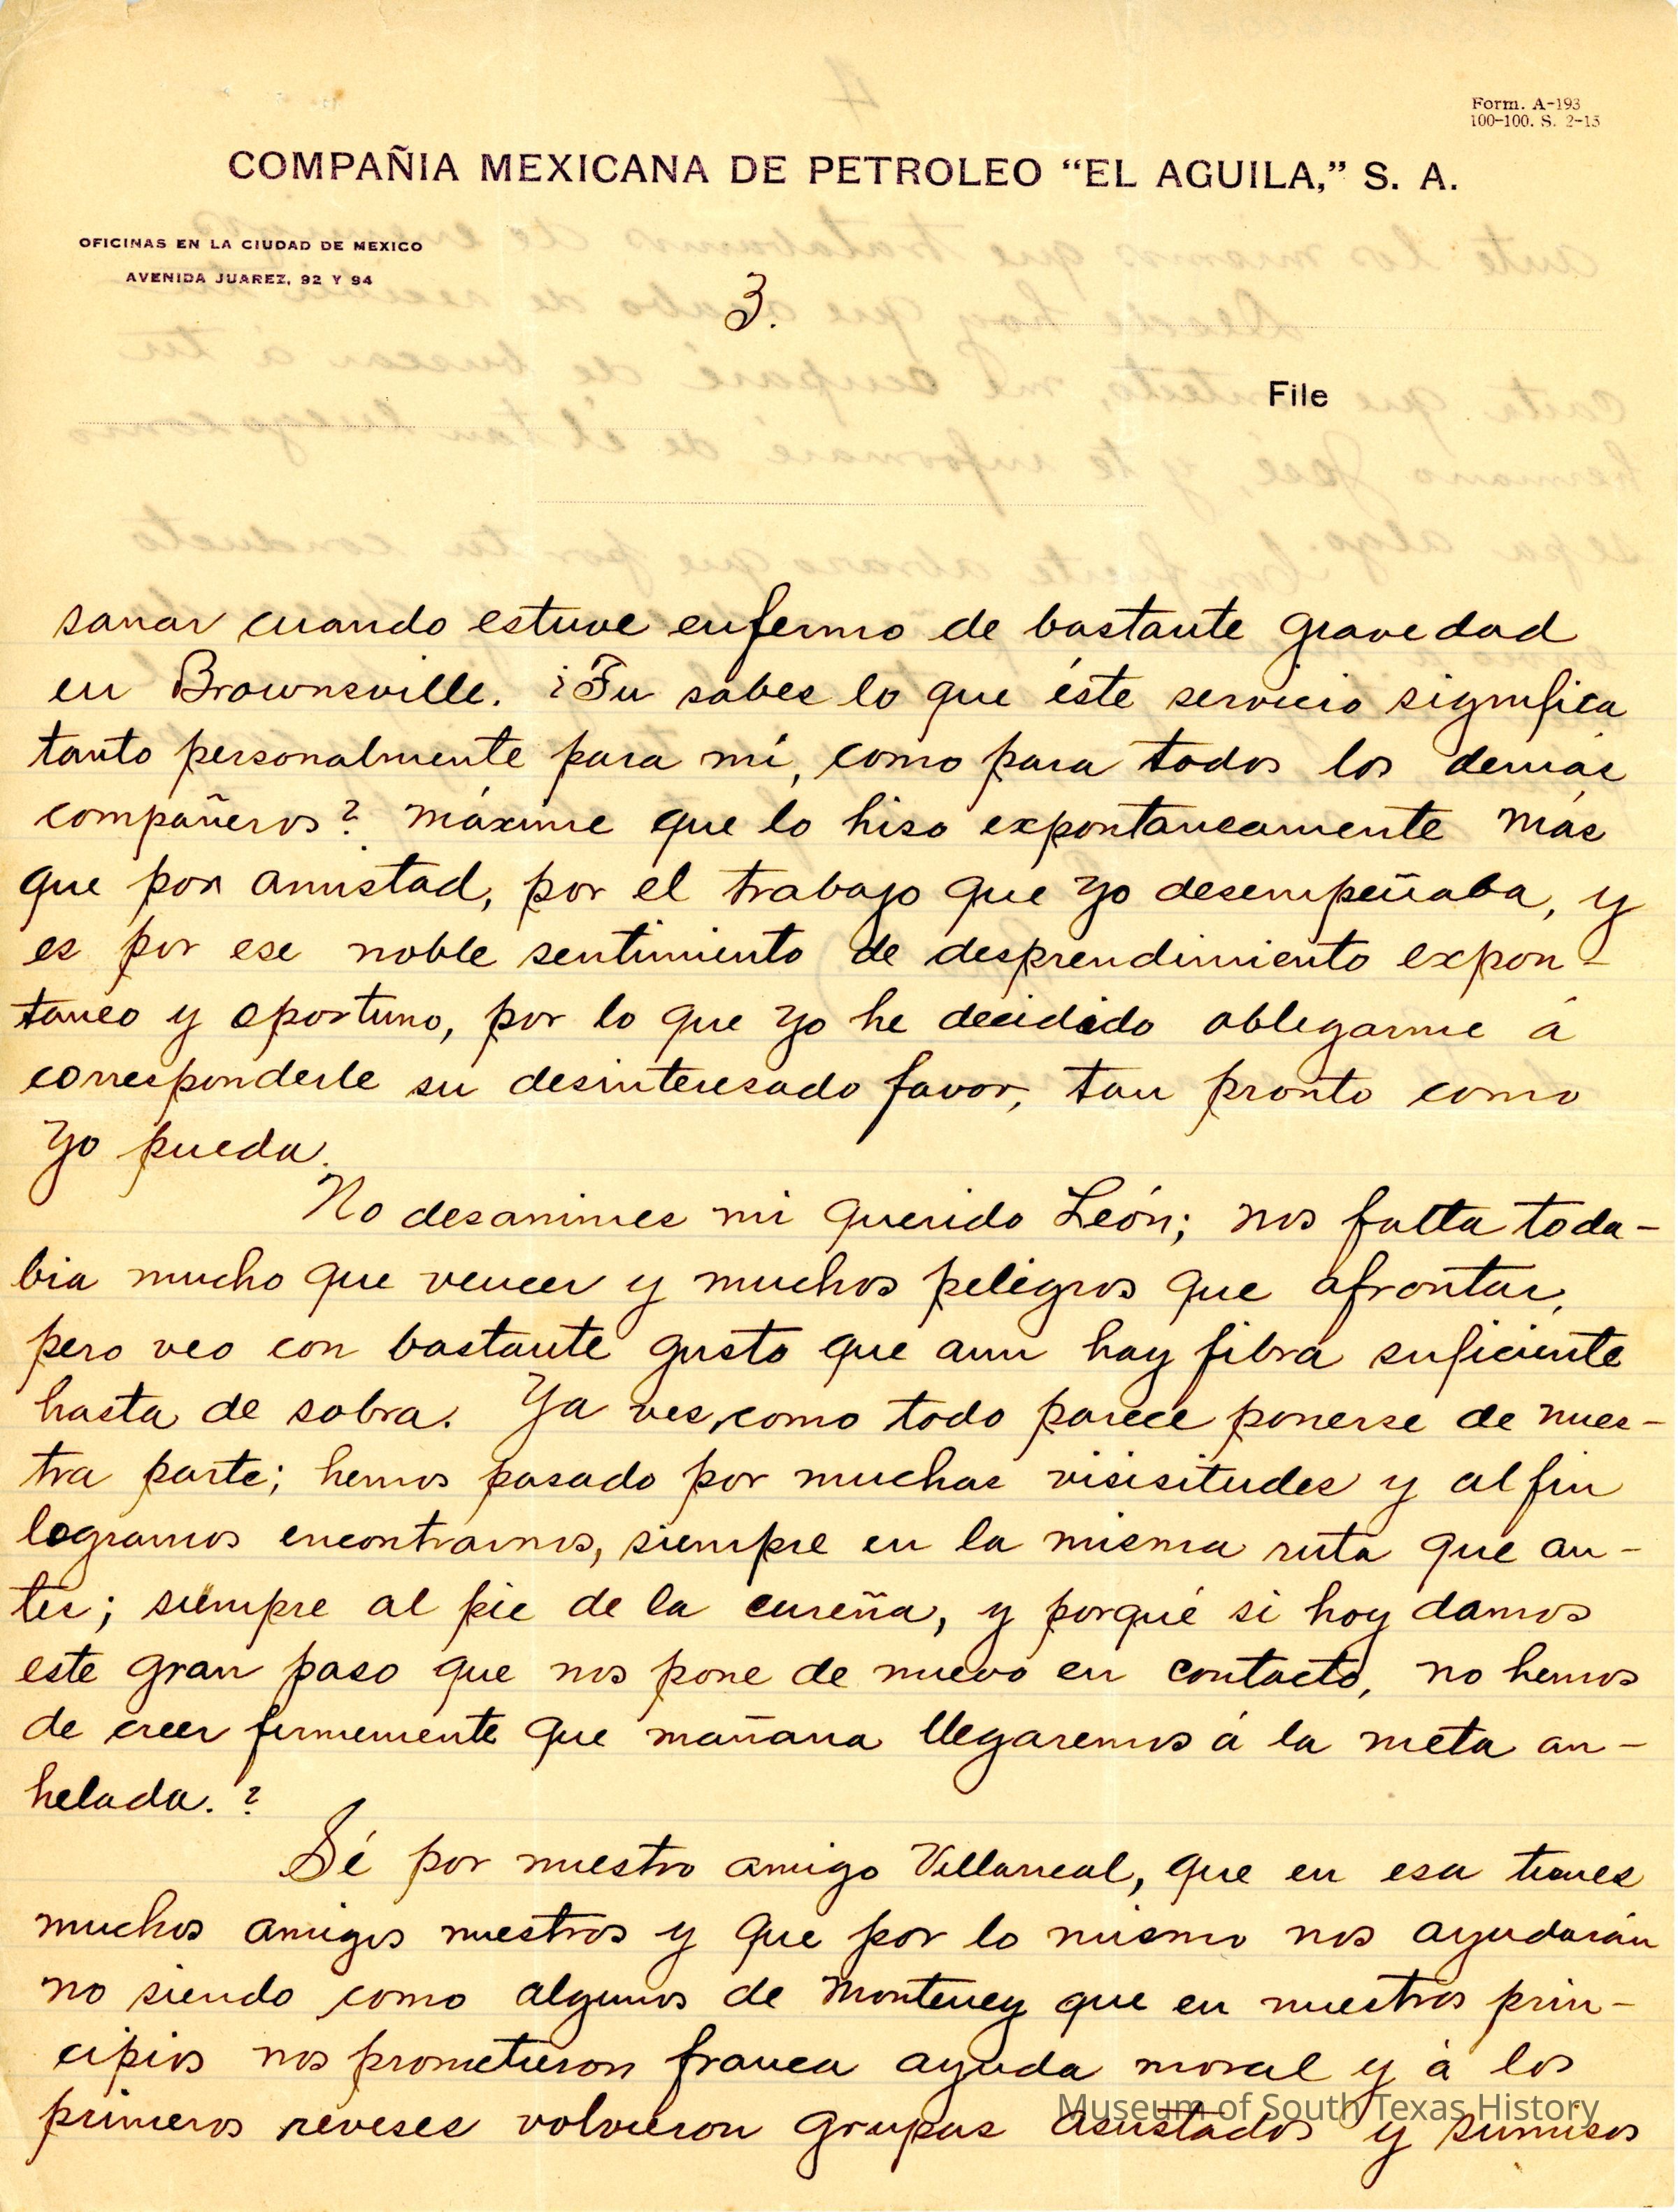 Form. A-193
100-100. S. 2-15
COMPAÑIA MEXICANA DE PETROLEO “EL AGUILA,” S. A.
OFICINAS EN LA CIUDAD DE MEXICO
AVENIDA JUAREZ, 92 Y 94
3.
File
sanar cuando estuve enfermo de bastante gravedad
en Brownsville. ¿Tu sabes lo que éste servicio significa
tanto personalmente para mí, como para todos los demás
compañeros? máxime que lo hiso expontaneamente más
que por amistad, por el trabajo que yo desempeñaba, y
es por ese noble sentimiento de desprendimiento expon-
taneo y oportuno, por lo que yo he decidido oblegarme á
corresponderle su desinteresado favor, tan pronto como
yo pueda.
No desanimes mi querido León; nos falta toda-
bia mucho que vencer y muchos peligros que afrontar,
pero veo con bastante gusto que aun hay fibra suficiente
hasta de sobra. Ya ves, como todo parece ponerse de nues-
tra parte; hemos pasado por muchas visisitudes y al fin
logramos encontrarnos, siempre en la misma ruta que an-
tes; siempre al pie de la cureña, y porqué si hoy damos
este gran paso que nos pone de nuevo en contacto, no hemos
de creer firmemente que mañana llegaremos á la meta an-
helada. ?
Sé por nuestro amigo Villarreal, que en esa tienes
muchos amigos nuestros y que por lo mismo nos ayudarán
no siendo como algunos de Monterrey que en nuestros prin-
cipios nos prometieron franca ayuda moral y á los
primeros reveses volvieron grupas asustados y sumisos
Museum of South Texas History